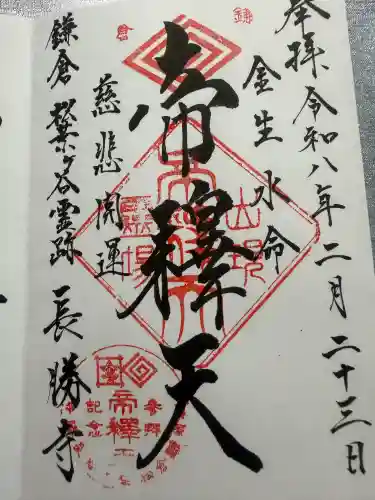 奉拝 令和八年二月二十三日
金生水命
帝釋天
慈悲開運
鎌倉 松葉ヶ谷霊跡 長勝寺
鎌
倉
帝釋天
出現
霊場
帝釋天
参拝
記念